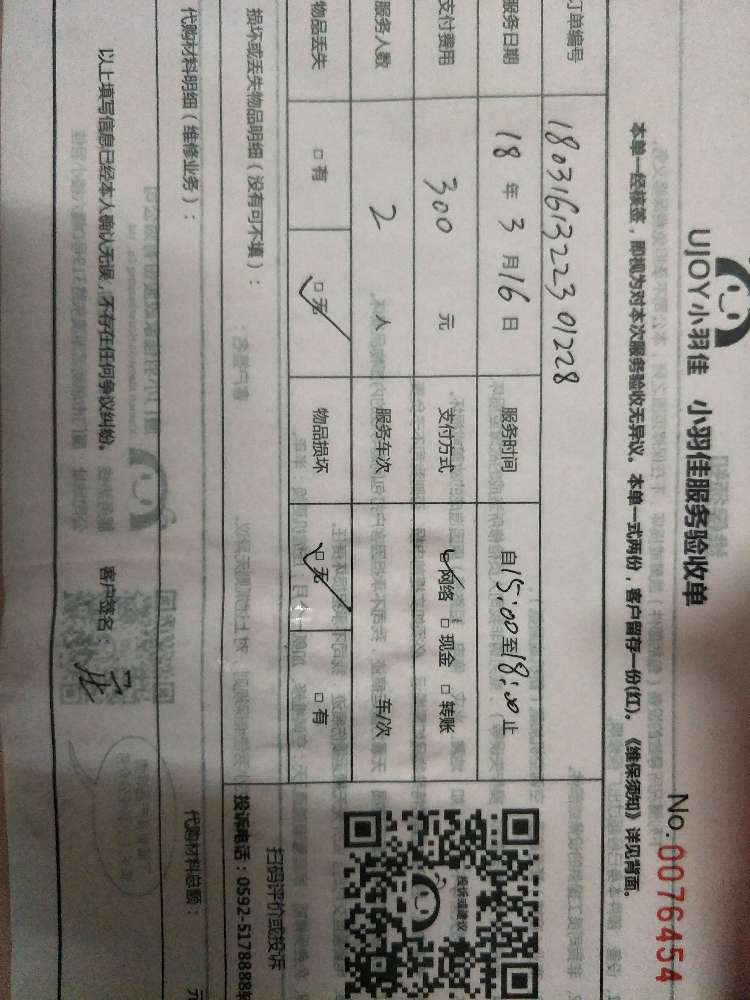 UJOY小羽佳 小羽佳服务验收单
No.0076454
本单一经核签，即视为对本次服务验收无异议。本单一式两份，客户留存一份(红)。《维保须知》详见背面。
订单编号 18031613223 01228
服务日期 18 年 3 月 16 日 服务时间 自 15:00 至 18:00 止
支付费用 300 元 支付方式 网络 □ 现金 □ 转账
服务人数 2 人 服务车次 车/次
物品丢失 □ 有 □ 无 物品损坏 □ 无 □ 有
损坏或丢失物品明细（没有可不填）：
投诉或建议
扫码评价或投诉
投诉电话：0592-5178888转
代购材料明细（维修业务）： 代购材料总额： 元
以上填写信息已经本人确认无误，不存在任何争议纠纷。 客户签名：